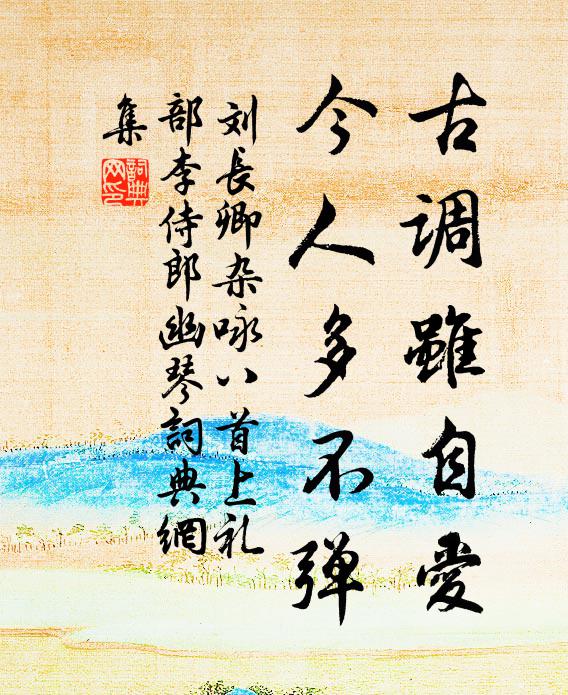 古调雖自愛
今人多不弹
刘長卿杂咏八首上礼
部李侍郎幽琴詞典網
集
詞典
网印